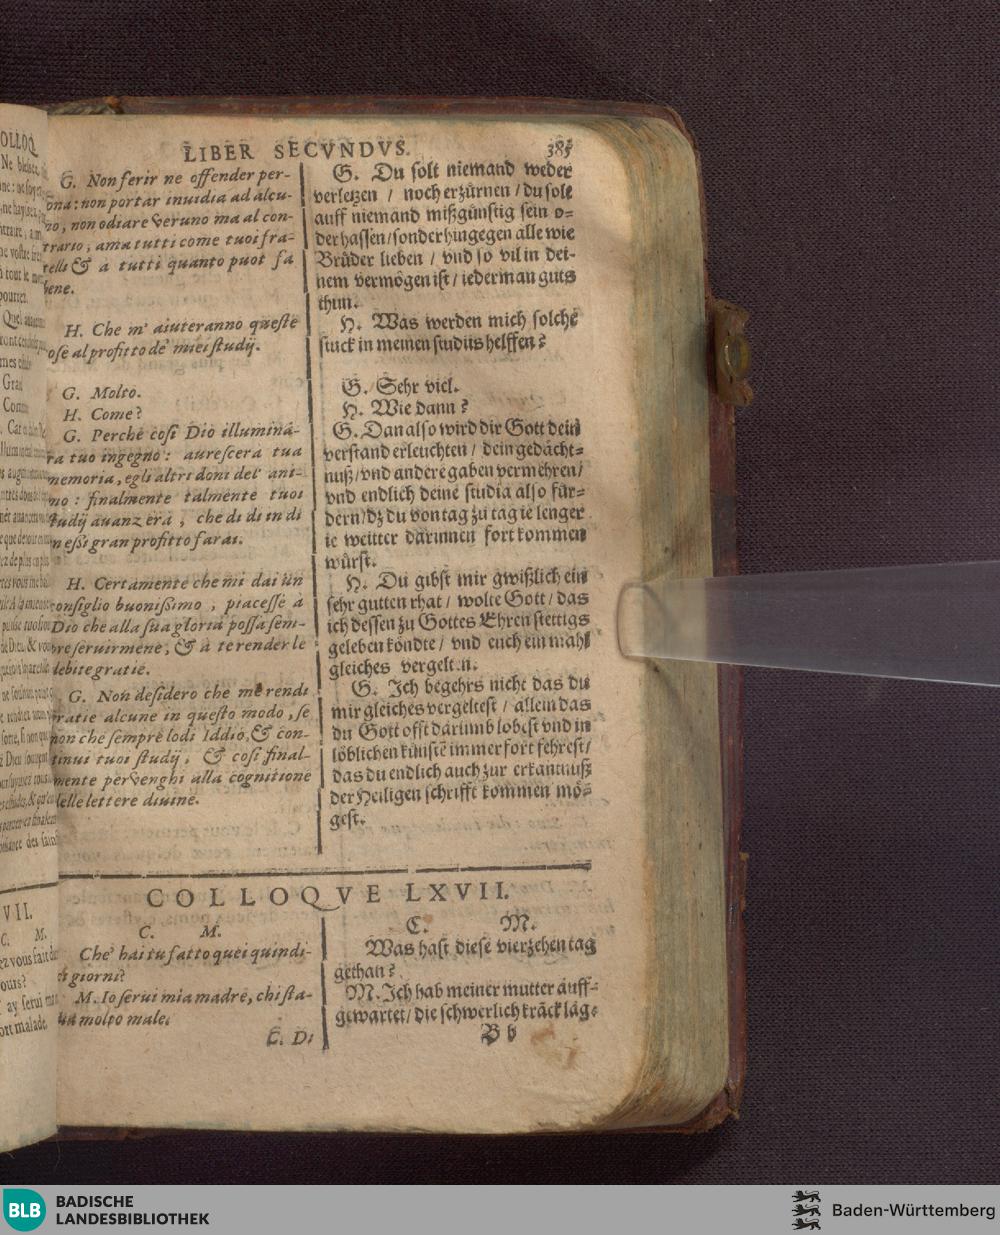 LIBER SECVNDVS. 385
G. Non ferir ne offender per-
ona: non portar inuidia ad alcu-
no, non odiare veruno ma al con-
trario, ama tutti come tuoi fra-
telli & a tutti quanto puot fa
bene.
H. Che m' aiuteranno queste
ose al profitto de' miei studij.
G. Molto.
H. Come?
G. Perche cosi Dio illuminá-
ra tuo ingegno: aurescera tua
memoria, egli altri doni del' ani-
mo: finalmente talmente tuoi
studij auanzerà, che di di in di
n eßi gran profitto farai.
H. Certamente che mi dai un
consiglio buonißimo, piacesse à
Dio che alla sua gloria possa sem-
pre seruirmene, & à te render le
debite gratie.
G. Non desidero che me rendi
gratie alcune in questo modo, se
non che sempre lodi Iddio, & con-
tinui tuoi studij, & cosi final-
mente pervenghi alla cognitione
delle lettere diuine.
G. Du solt niemand weder
verletzen / noch erzürnen / du solt
auff niemand mißgünstig sein o-
der hassen / sonder hingegen alle wie
Brüder lieben / vnd so vil in dei-
nem vermögen ist / iederman guts
thun.
H. Was werden mich solche
stuck in meinen studiis helffen?
G. Sehr viel.
H. Wie dann?
G. Dan also wird dir Gott dein
verstand erleuchten / dein gedächt-
nuß / vnd andere gaben vermehren /
vnd endlich deine studia also für-
dern / dz du von tag zu tag ie lenger
ie weitter darinnen fort kommen
würst.
H. Du gibst mir gwißlich ein
sehr gutten rhat / wolte Gott / das
ich dessen zu Gottes Ehren stettigs
geleben köndte / vnd euch ein mahl
gleiches vergelten.
G. Ich begehrs nicht das du
mir gleiches vergeltest / allein das
du Gott offt darumb lobest vnd in
löblichen künste immer fort fehrest /
das du endlich auch zur erkantnuß
der Heiligen schrifft kommen mö-
gest.
COLLOQVE LXVII.
C. M.
Che' hai tu fatto quei quindi-
ci giorni?
M. Io serui mia madre, chi sta-
ua molto male.
C. Di
C. M.
Was hast diese vierzehen tag
gethan?
M. Ich hab meiner mutter auff-
gewartet / die schwerlich kräck lag.
B b
BLB BADISCHE
LANDESBIBLIOTHEK
Baden-Württemberg